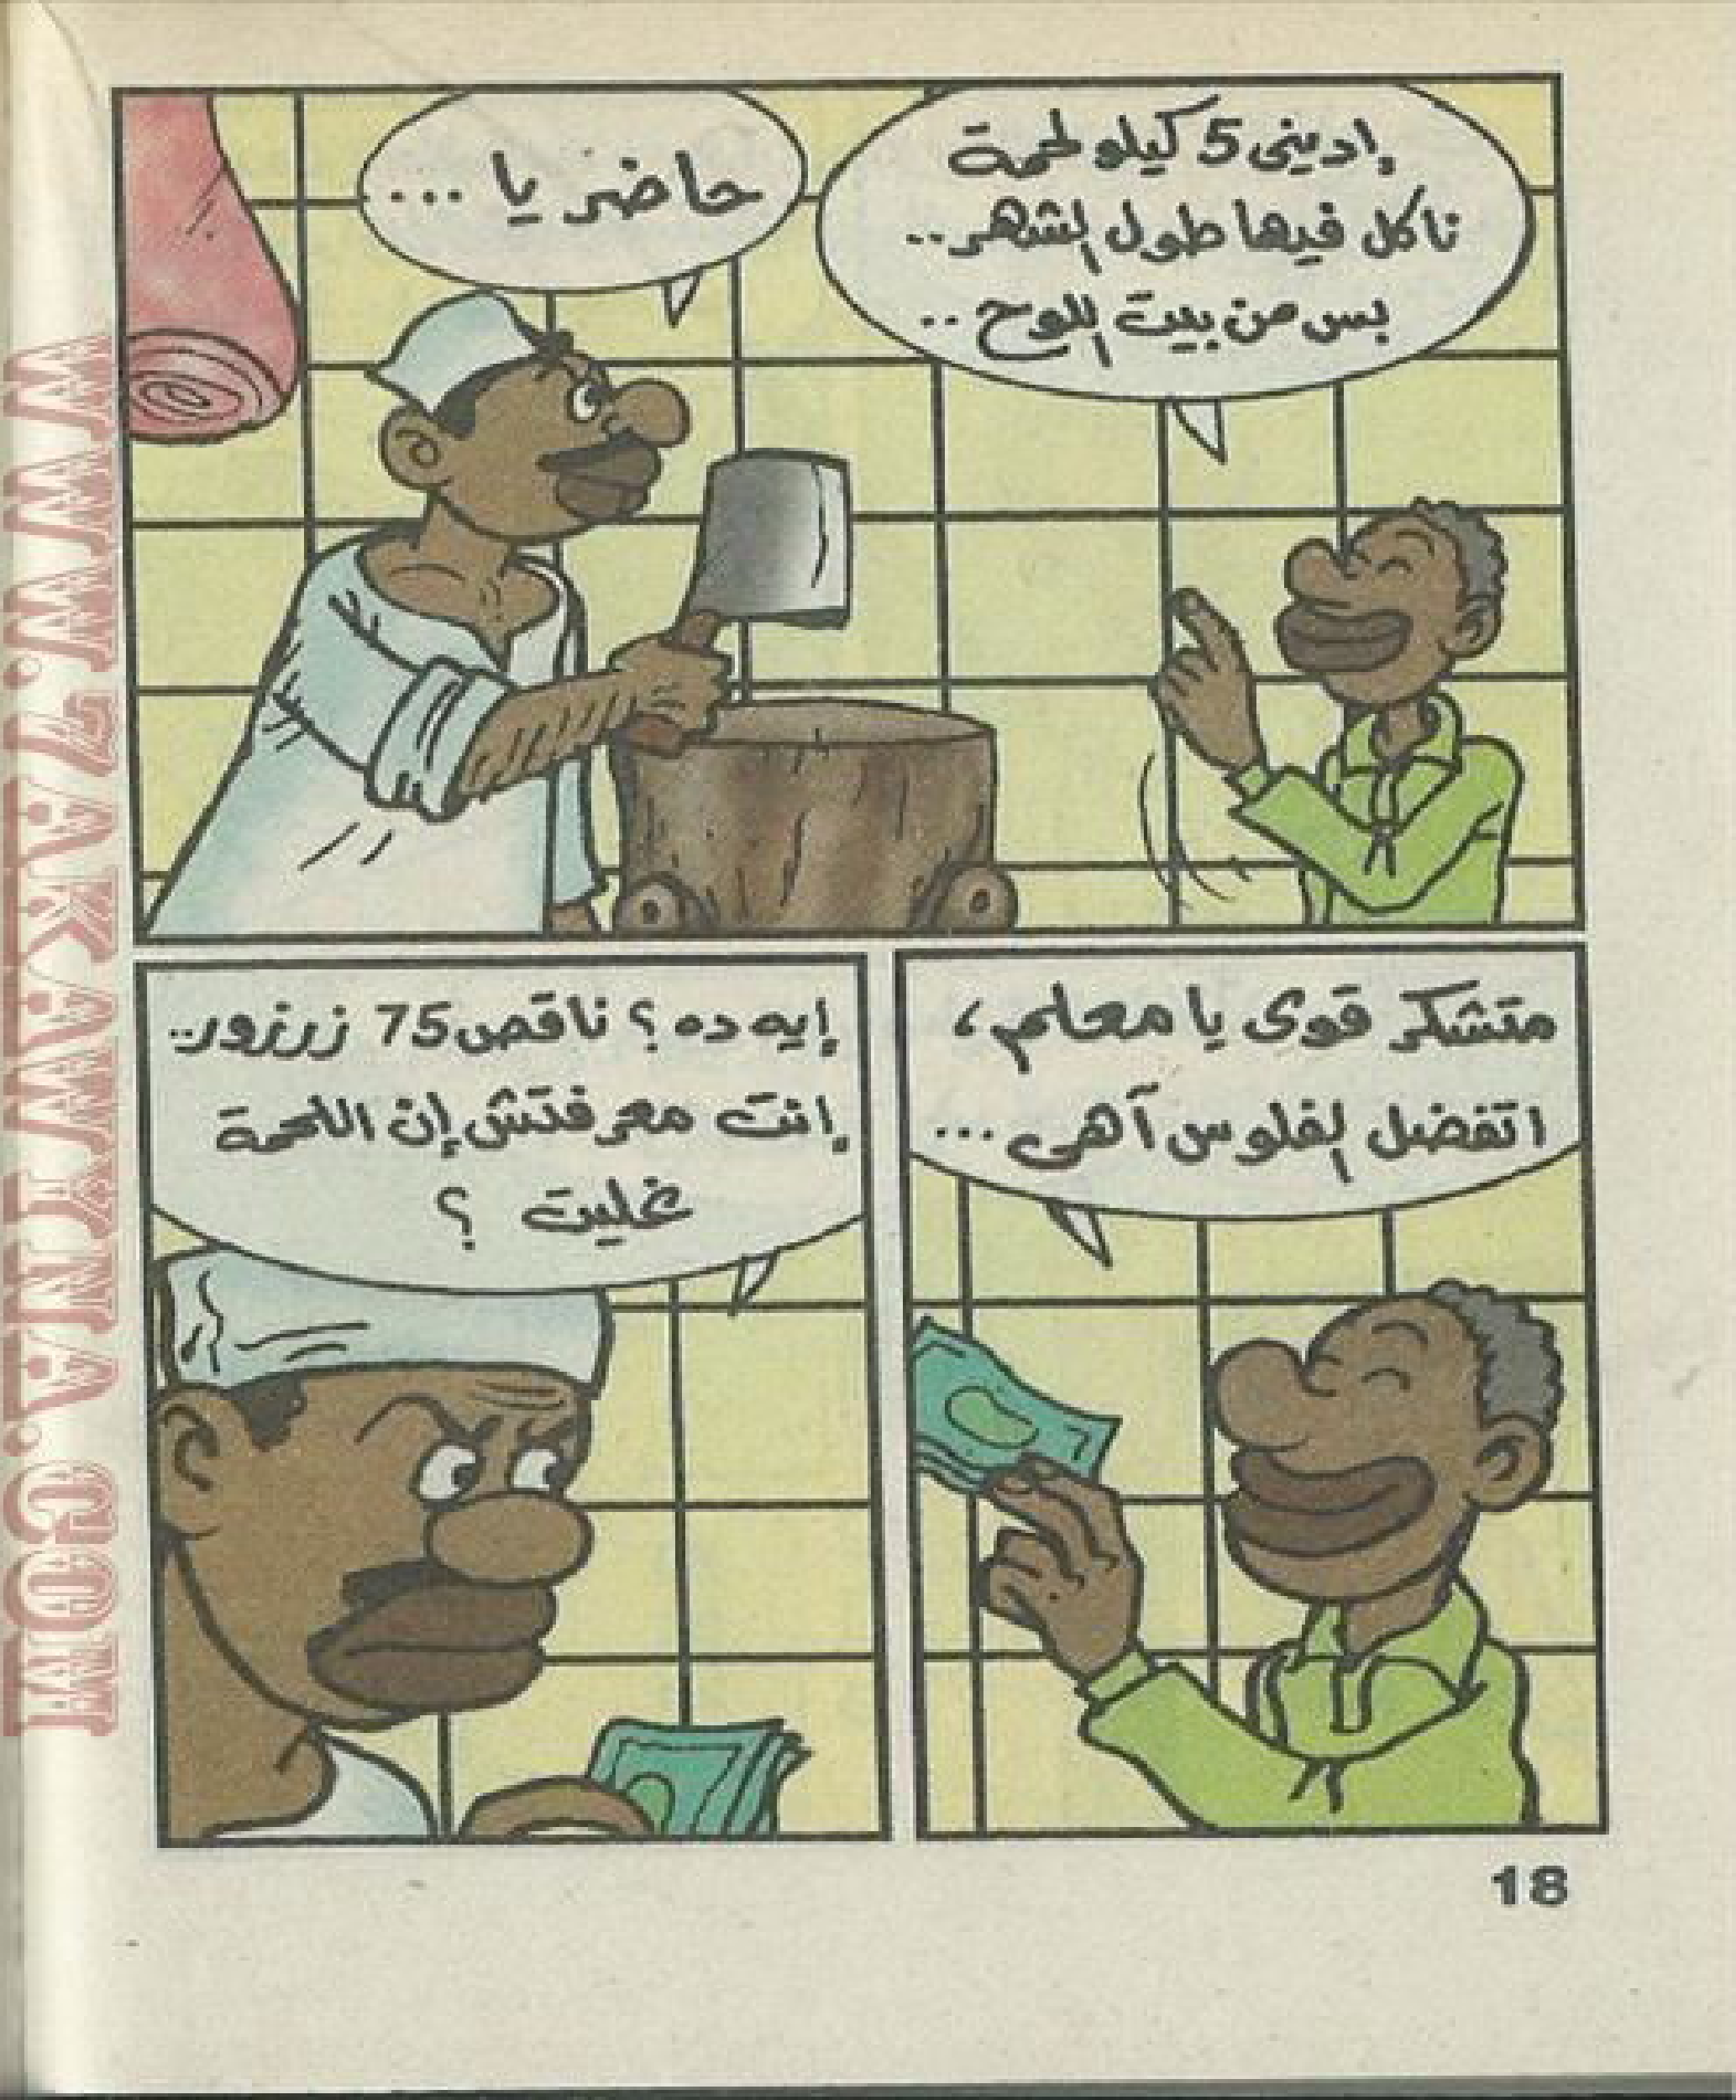 إدينى 5 كيلو لحمة
ناكل فيها طول الشهر..
بس من بيت اللوح ..
حاضر يا ...
متشكر قوى يا معلم،
اتفضل الفلوس آهى ...
إيه ده ؟ ناقص 75 زرزور..
إنت معرفتش إن اللحمة
غليت ؟
18
WWW.7AKAWITNA.COM